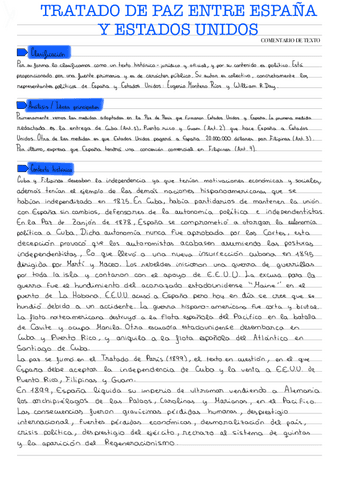 TRATADO DE PAZ ENTRE ESPAÑA
Y ESTADOS UNIDOS
COMENTARIO DE TEXTO
Clasificación
Por su forma lo clasificamos como un texto histórico-jurídico y oficial, y por su contenido es político. Está
proporcionado por una fuente primaria y es de carácter público. Su autor es colectivo, concretamente los
representantes políticos de España y Estados Unidos: Eugenio Montero Ríos y William R. Day.
Análisis / Ideas principales
Primeramente vemos las medidas adoptadas en la Paz de París que firmaron Estados Unidos y España. La primera medida
redactada es la entrega de Cuba (Art. 1), Puerto Rico y Guam (Art. 2) que hace España a Estados
Unidos. Otra de las medidas es que Estados Unidos pagará a España 20.000.000 dólares por Filipinas (Art. 3).
Por último, expresa que España tendrá una concesión comercial en Filipinas (Art. 4).
Contexto histórico
Cuba y Filipinas deseaban la independencia ya que tenían motivaciones económicas y sociales,
además tenían el ejemplo de las demás naciones hispanoamericanas que se
habían independizado en 1825. En Cuba, había partidarios de mantener la unión
con España sin cambios, defensores de la autonomía política e independentistas.
En la Paz de Zanjón de 1878, España se comprometió a otorgar la autonomía
política a Cuba. Dicha autonomía nunca fue aprobada por las Cortes, esta
decepción provocó que los autonomistas acabasen asumiendo las posturas
independentistas, lo que llevó a una nueva insurrección cubana en 1895
dirigida por Martí y Maceo. Los rebeldes iniciaron una guerra de guerrillas
por toda la isla y contaron con el apoyo de E.E.U.U. La excusa para la
guerra fue el hundimiento del acorazado estadounidense "Maine" en el
puerto de La Habana, EEUU acusó a España pero hoy en día se cree que se
hundió debido a un accidente. La guerra hispano-americana fue corta y brutal.
La flota norteamericana destruyó a la flota española del Pacífico en la batalla
de Cavite y ocupa Manila. Otra escuadra estadounidense desembarca en
Cuba y Puerto Rico, y aniquila a la flota española del Atlántico en
Santiago de Cuba.
La paz se firmó en el Tratado de París (1899), el texto en cuestión, en el que
España debe aceptar la independencia de Cuba y la venta a EE.UU. de
Puerto Rico, Filipinas y Guam.
En 1899, España liquida su imperio de ultramar vendiendo a Alemania
los archipiélagos de las Palaos, Carolinas y Marianas, en el Pacífico.
Las consecuencias fueron gravísimas: pérdidas humanas, desprestigio
internacional, fuertes pérdidas económicas, desmoralización del país,
crisis política, desprestigio del ejército, rechazo al sistema de quintas
y la aparición del Regeneracionismo.